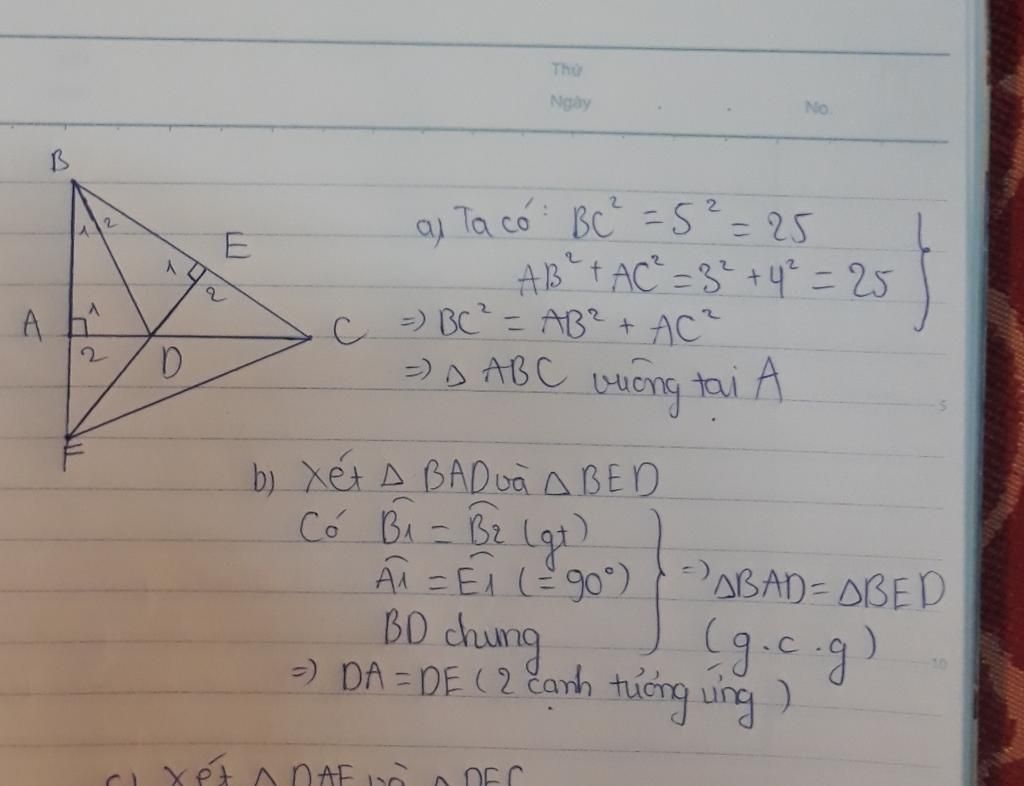 Thứ
Ngày . . No.
B
1 2
E
1
2
A 1
2
D
C
F
a) Ta có: BC² = 5² = 25
AB² + AC² = 3² + 4² = 25
=> BC² = AB² + AC²
=> △ ABC vuông tại A
5
b) Xét △ BAD và △ BED
Có B̂1 = B̂2 (gt)
Â1 = Ê1 (= 90°) => △BAD = △BED
BD chung (g.c.g)
10
=> DA = DE (2 cạnh tương ứng)
c) Xét △ DAF và △ DEC